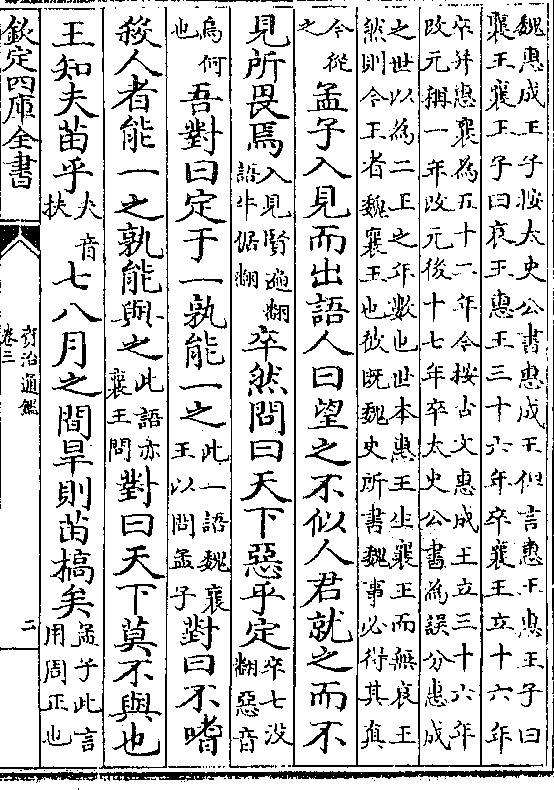 魏惠成王子按太史公書惠成王但言惠王惠王子曰
襄王襄王子曰哀王惠王三十六年卒襄王立十六年
卒并惠襄為五十二年今按古文惠成王立三十六年
改元稱一年改元後十七年卒太史公書為誤分惠成
之世以為二王之年數也世本惠王生襄王而無哀王
然則今王者魏襄王也彼既魏史所書魏事必得其真
今從之孟子入見而出語人曰望之不似人君就之而不
見所畏焉入見賢遍翻語牛倨翻卒然問曰天下惡乎定卒七没翻惡音
烏何也吾對曰定于一孰能一之此一語魏襄王以問孟子對曰不嗜
殺人者能一之孰能與之此語亦襄王問對曰天下莫不與也
王知夫苗乎夫音扶七八月之間旱則苗槁矣孟子此言用周正也
欽定四庫全書
資治通鑑
卷三
二